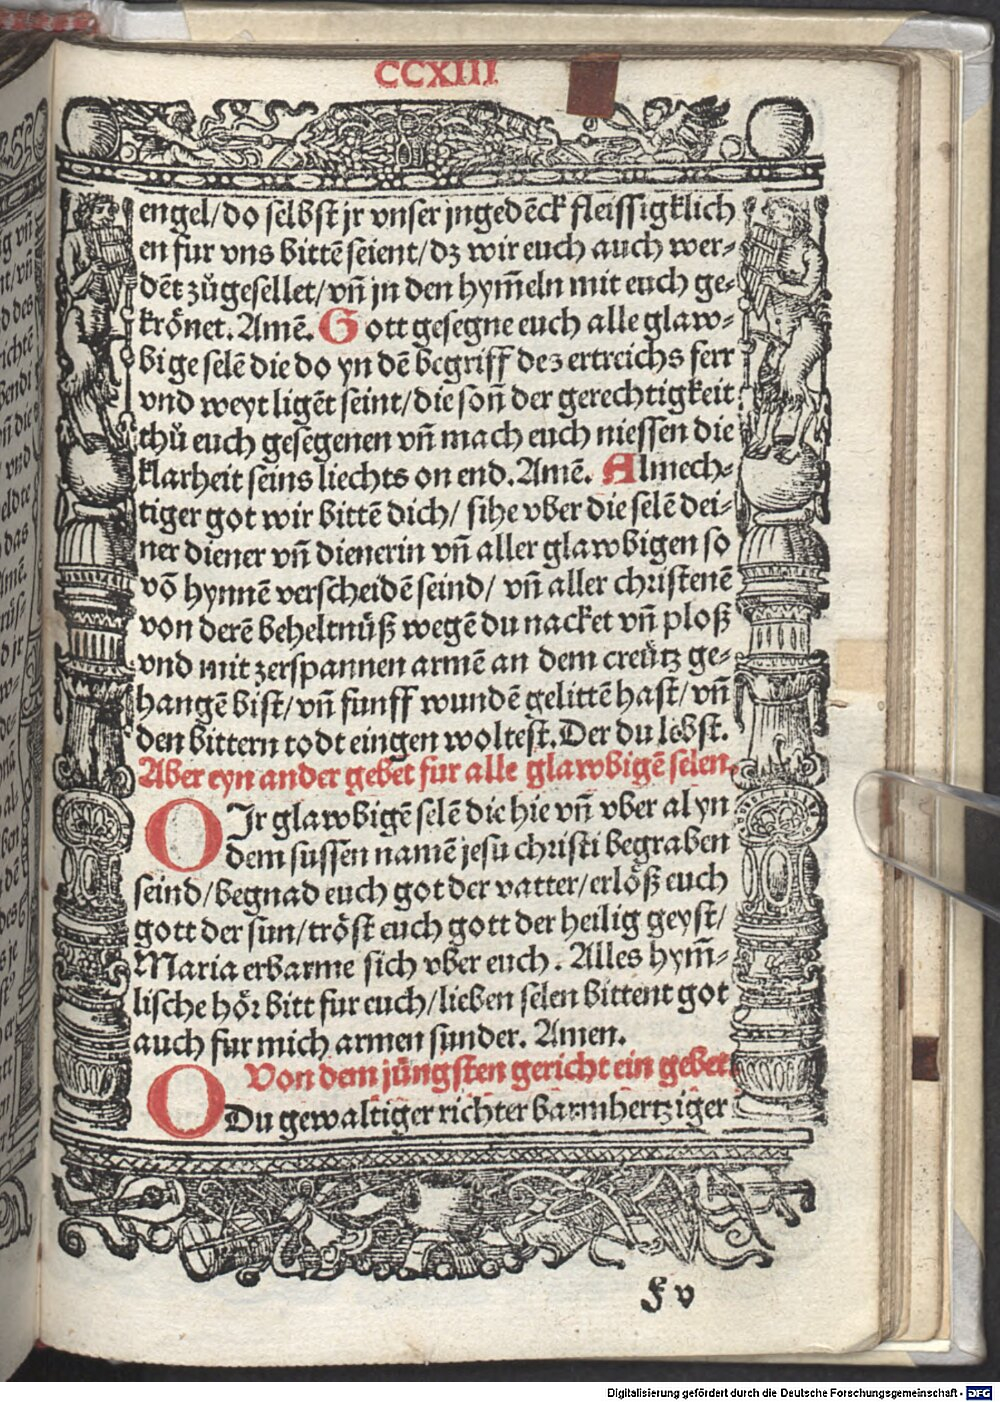 CCXIII
engel/do selbst jr vnser jngedēck fleissigklich
en fur vns bittē seient/dz wir euch auch wer⸗
dēt zůgesellet/vñ jn den hym̃eln mit euch ge⸗
krönet. Amē. Gott gesegne euch alle glaw⸗
bige selē die do yn dē begriff des ertreichs ferr
vnd weyt ligēt seint/die soñ der gerechtigkeit
thů euch gesegenen vñ mach euch niessen die
klarheit seins liechts on end. Amē. Almech⸗
tiger got wir bittē dich/ sihe vber die selē dei⸗
ner diener vñ dienerin vñ aller glawbigen so
vō hynnē verscheidē seind/ vñ aller christenē
von derē beheltnüß wegē du nacket vñ ploß
vnd mit zerspannen armē an dem creütz ge⸗
hangē bist/vñ funff wundē gelittē hast/vñ
den bittern todt eingen woltest. Der du lebst.
Aber eyn ander gebet fur alle glawbigē selen.
OIr glawbigē selē die hie vñ vber al yn
dem sussen namē jesu christi begraben
seind/begnad euch got der vatter/erlöß euch
gott der sun/tröst euch gott der heilig geyst/
Maria erbarme sich vber euch. Alles hym̃⸗
lische hör bitt fur euch/lieben selen bittent got
auch fur mich armen sunder. Amen.
Von dem jüngsten gericht ein gebet.
ODu gewaltiger richter barmhertziger
f v
Digitalisierung gefördert durch die Deutsche Forschungsgemeinschaft - DFG